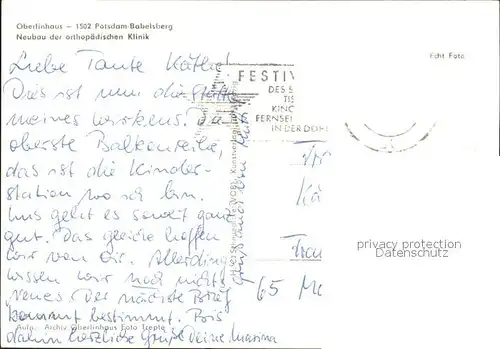 Oberlinhaus – 1502 Potsdam-Babelsberg
Neubau der orthopädischen Klinik
Echt Foto
Liebe Tante Käthe!
Dies ist nun die Stätte
meines Wirkens. Die
oberste Balkonreihe,
das ist die Kinder-
station wo ich bin.
Uns geht es soweit ganz
gut. Das gleiche hoffen
wir von Dir. Allerdings
wissen wir noch nichts
Neues. Der nächste Brief
kommt bestimmt. Bis
dahin herzliche Grüße Deine Marina
Aufn.: Archiv Oberlinhaus Foto Trepte
FESTIV
DES S
TIS
KINO
FERNSE
IN DER DDR
Kä
65
privacy protection
Datenschutz